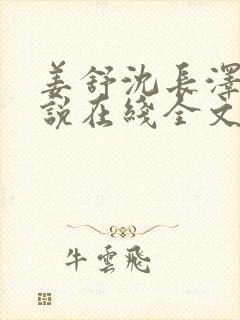 姜舒沈長澤
說在綫全文
牛雲飛